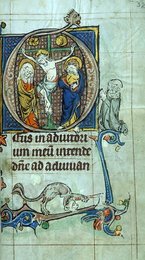 eus in adiutori
um meū intende
dn̄e ad adiuuan